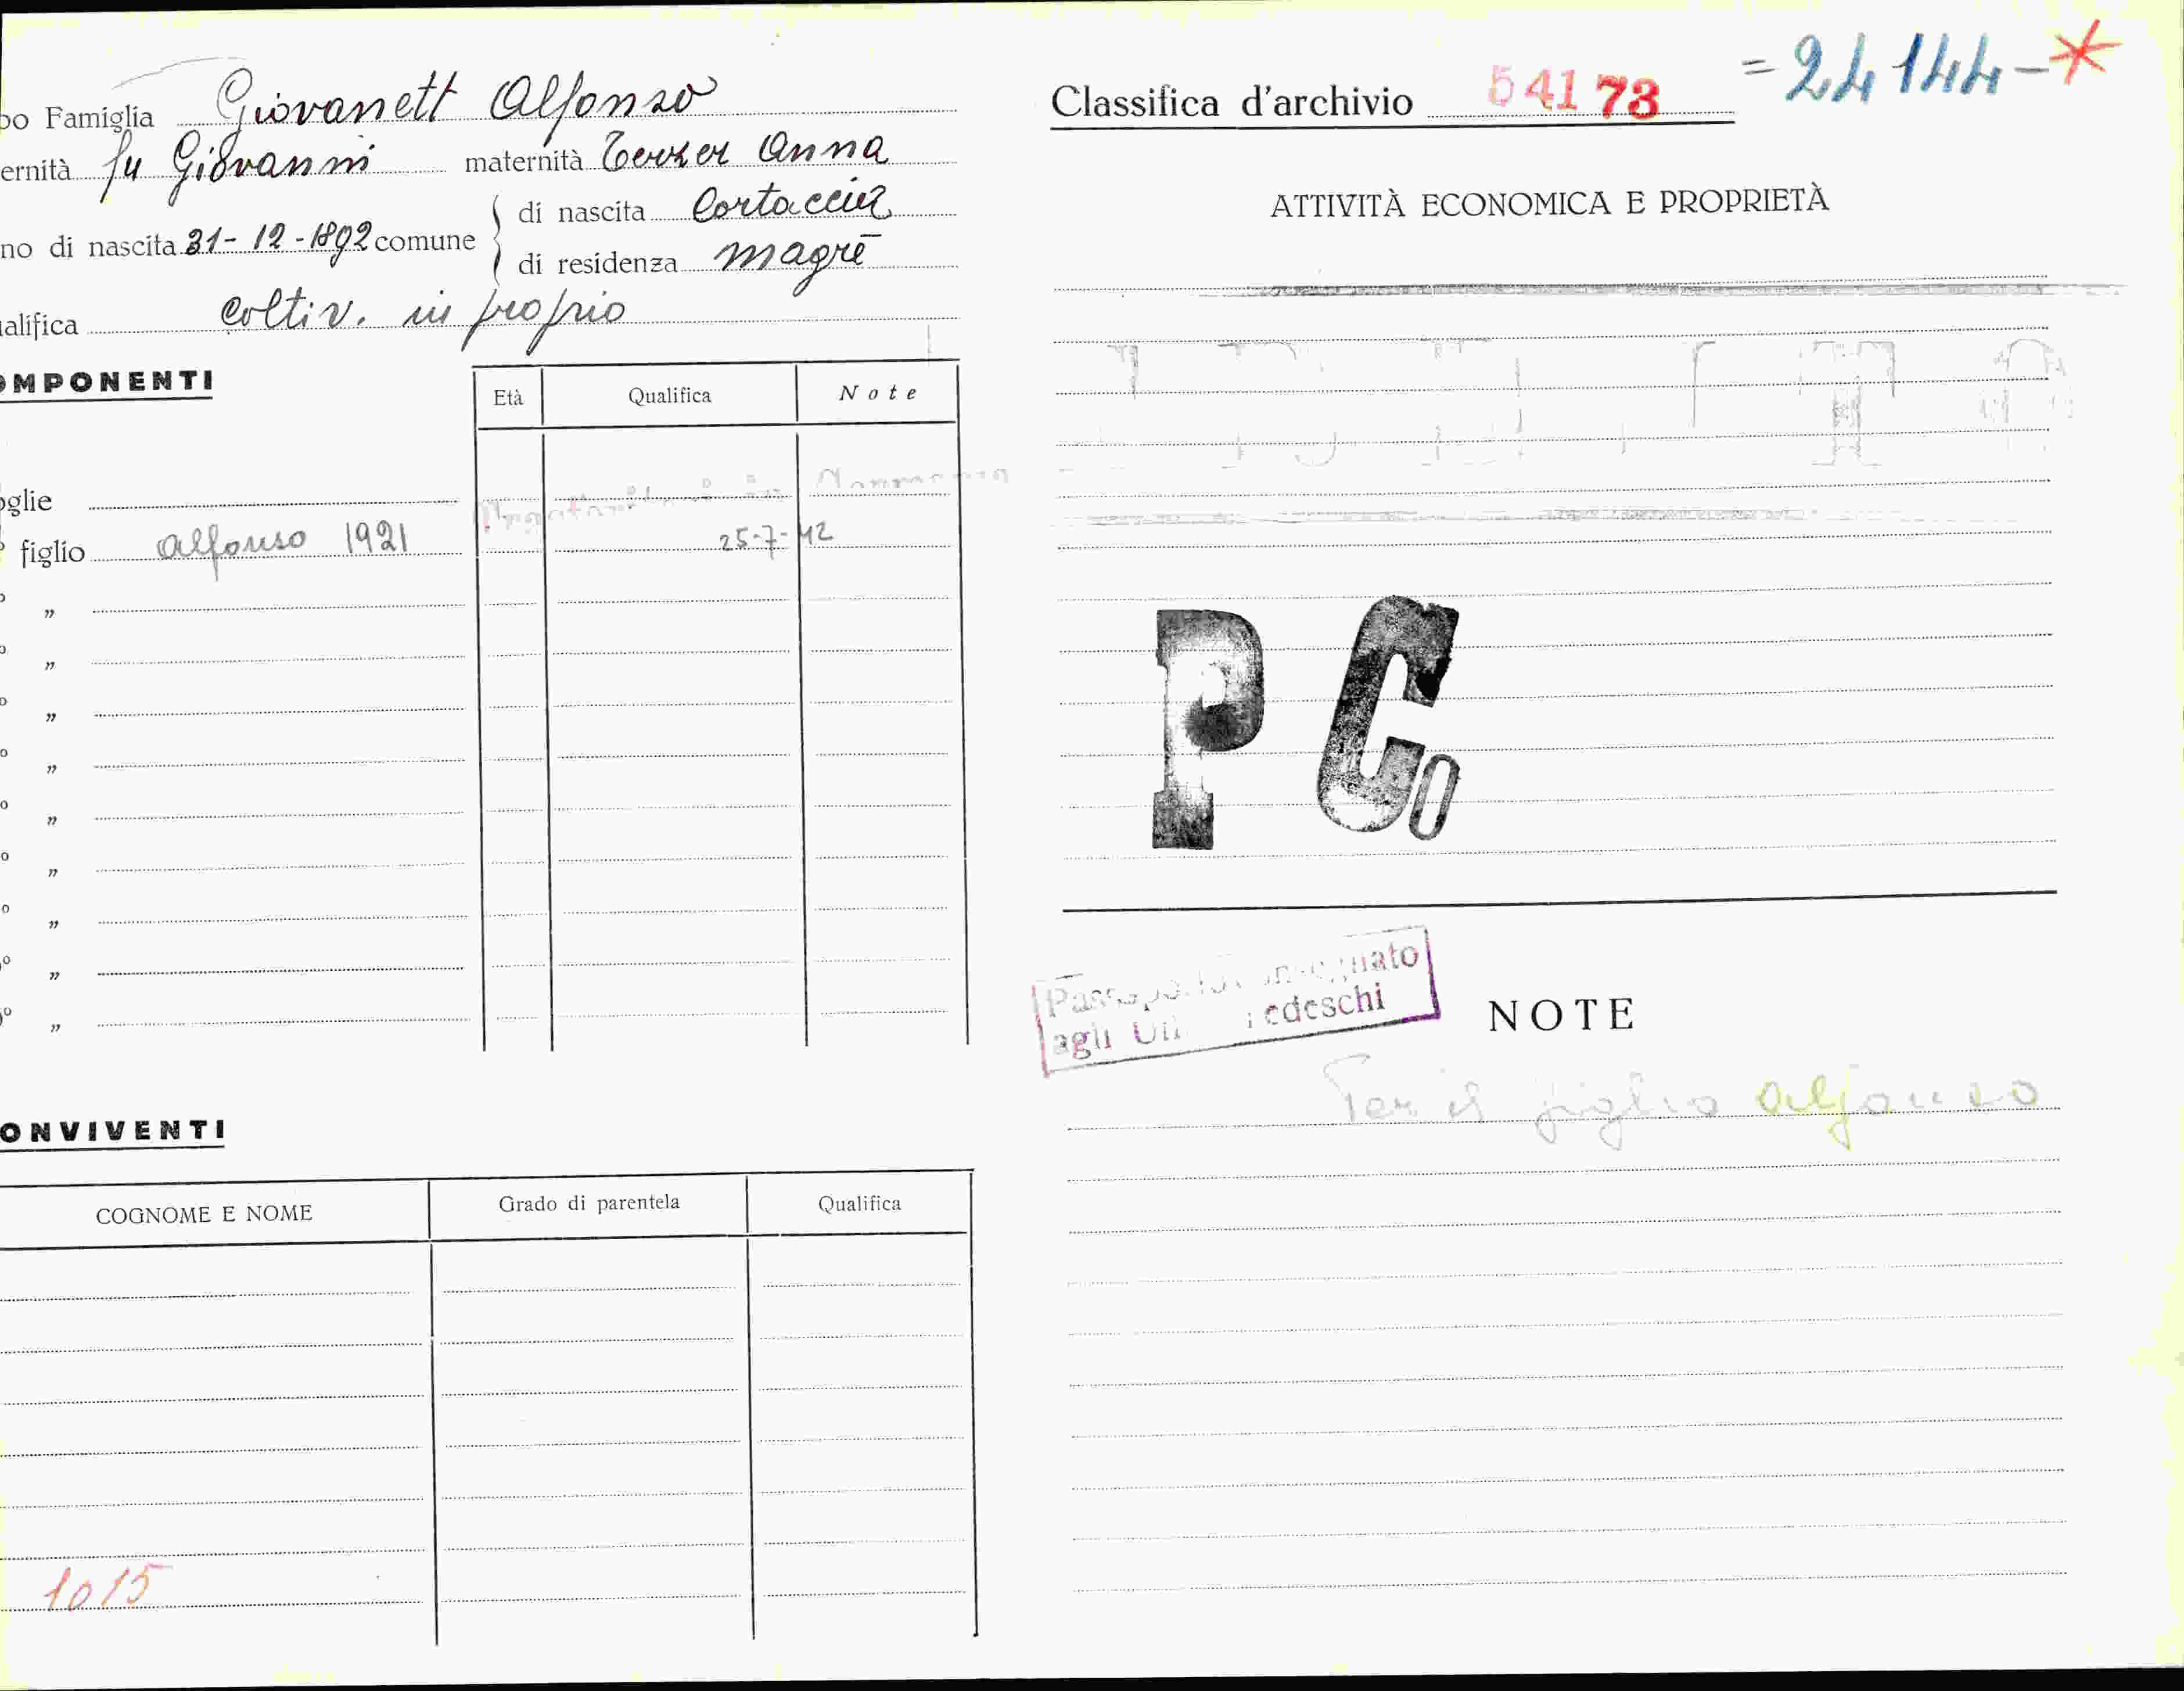 po Famiglia Giovanett Alfonso
ernità fu Giovanni maternità Terzer Anna
no di nascita 31-12-1892 comune di nascita Cortaccia
di residenza Magrè
alifica coltiv. in proprio
OMPONENTI
Età Qualifica Note
oglie
figlio Alfonso 1921 25-7-42
"
"
"
"
"
"
"
"
"
ONVIVENTI
COGNOME E NOME Grado di parentela Qualifica
1015
Classifica d'archivio 54173 =24144-*
ATTIVITÀ ECONOMICA E PROPRIETÀ
P Co
agli edeschi
NOTE
Per il figlio Alfonso